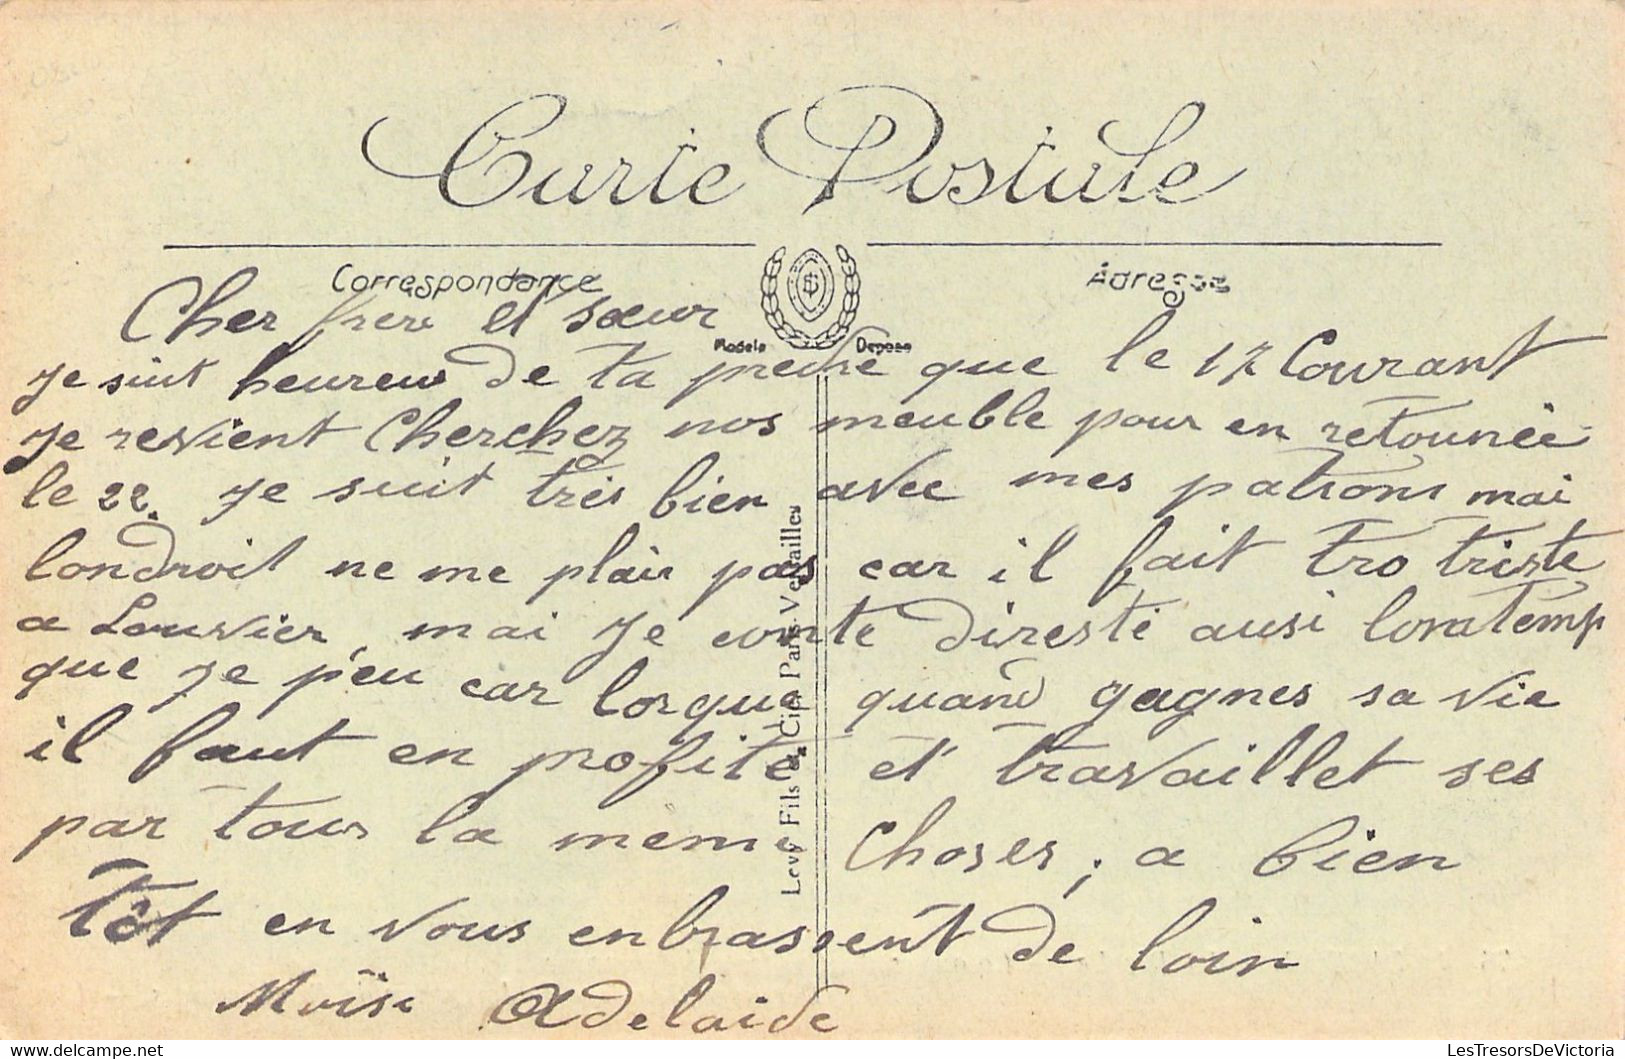 Carte Postale
Correspondance
Adresse
Modele Depose
Cher frere et sœur
Je suit heureus de ta preche que le 17 Courant
Je revient Cherchez nos meuble pour en retounée
le 22. Je suit très bien avec mes patrons mai
londroit ne me plais pas car il fait tro triste
a Louvier, mai je conte diresté ausi lontemp
que je peu car lorque quand gagnes sa vie
il faut en profité et travaillet ses
par tous la meme Choses, a bien
Tôt en vous enbrassent de loin
Moïse Adelaide
Levy Fils & Cie Paris-Versailles
LesTresorsDeVictoria